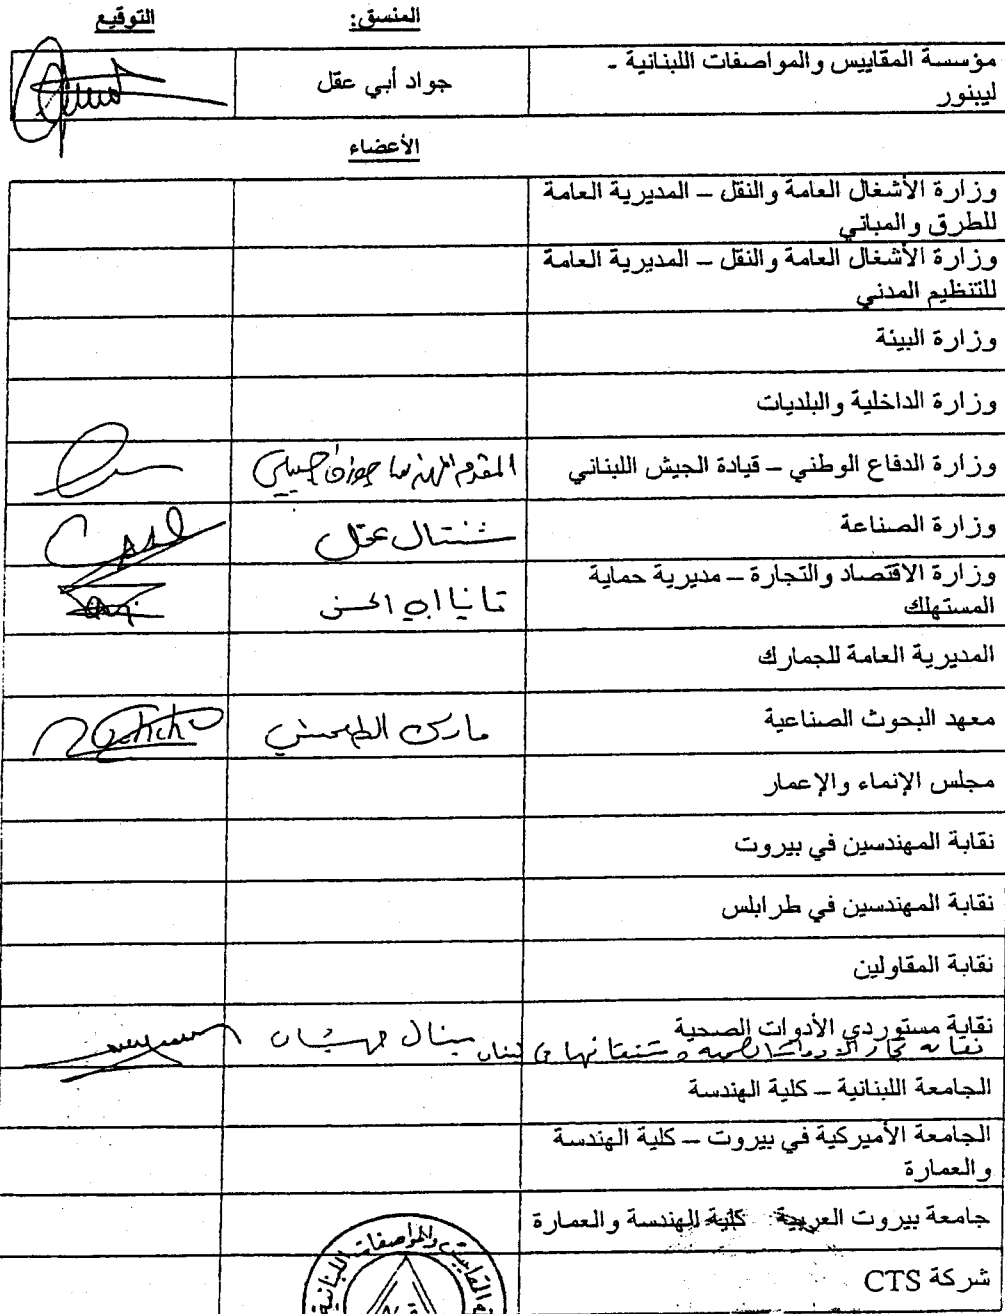 المنسق: التوقيع
مؤسسة المقاييس والمواصفات اللبنانية - جواد أبي عقل
ليبنور
الأعضاء
وزارة الأشغال العامة والنقل – المديرية العامة
للطرق والمباني
وزارة الأشغال العامة والنقل – المديرية العامة
للتنظيم المدني
وزارة البيئة
وزارة الداخلية والبلديات
وزارة الدفاع الوطني – قيادة الجيش اللبناني المقدم
وزارة الصناعة شنتال عقل
وزارة الاقتصاد والتجارة – مديرية حماية تانيا ابي الحسن
المستهلك
المديرية العامة للجمارك
معهد البحوث الصناعية مارك
مجلس الإنماء والإعمار
نقابة المهندسين في بيروت
نقابة المهندسين في طرابلس
نقابة المقاولين
نقابة مستوردي الأدوات الصحية
نقابة تجار الادوات الصحية ومشتقاتها في لبنان
الجامعة اللبنانية – كلية الهندسة
الجامعة الأميركية في بيروت – كلية الهندسة
والعمارة
جامعة بيروت العربية كلية الهندسة والعمارة
شركة CTS
المقاييس والمواصفات اللبنانية